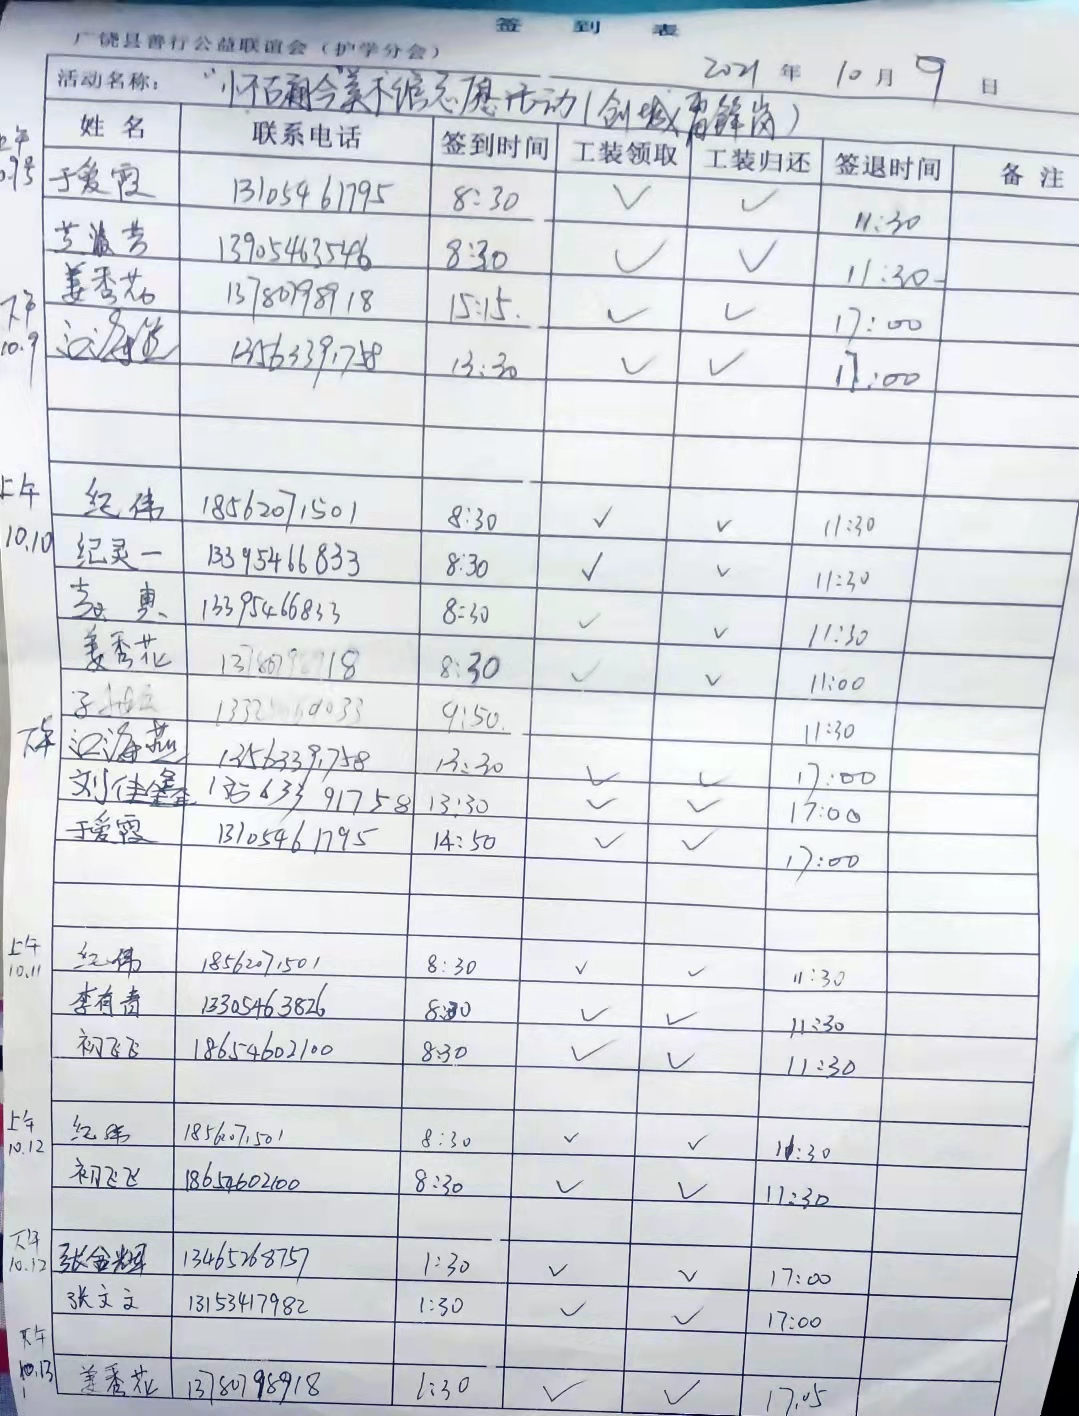 签到表
广饶县善行公益联谊会（护学分会）
2021年10月9日
活动名称： 志愿活动（创城
姓名 联系电话 签到时间 工装领取 工装归还 签退时间 备注
上午
于爱霞 13105461795 8:30 ✓ ✓ 11:30
13905463546 8:30 ✓ ✓ 11:30
姜秀花 13780798918 15:15 ✓ ✓ 17:00
下午
10.9
江海燕 13563391758 13:30 ✓ ✓ 17:00
上午
纪伟 18562071501 8:30 ✓ ✓ 11:30
10.10
纪灵一 13395466833 8:30 ✓ ✓ 11:30
13395466833 8:30 ✓ ✓ 11:30
姜秀花 8:30 ✓ ✓ 11:00
9:50 11:30
下午
江海燕 13563391758 13:30 ✓ ✓ 17:00
刘佳鑫 13563391758 13:30 ✓ ✓ 17:00
于爱霞 13105461795 14:50 ✓ ✓ 17:00
上午
10.11
纪伟 18562071501 8:30 ✓ ✓ 11:30
李有青 13305463826 8:30 ✓ ✓ 11:30
初飞飞 18654602100 8:30 ✓ ✓ 11:30
上午
10.12
纪伟 8:30 ✓ ✓ 11:30
初飞飞 18654602100 8:30 ✓ ✓ 11:30
下午
10.12
张金辉 13465268757 1:30 ✓ ✓ 17:00
张文文 13153417982 1:30 ✓ ✓ 17:00
下午
10.13
姜秀花 13780798918 1:30 ✓ ✓ 17:05